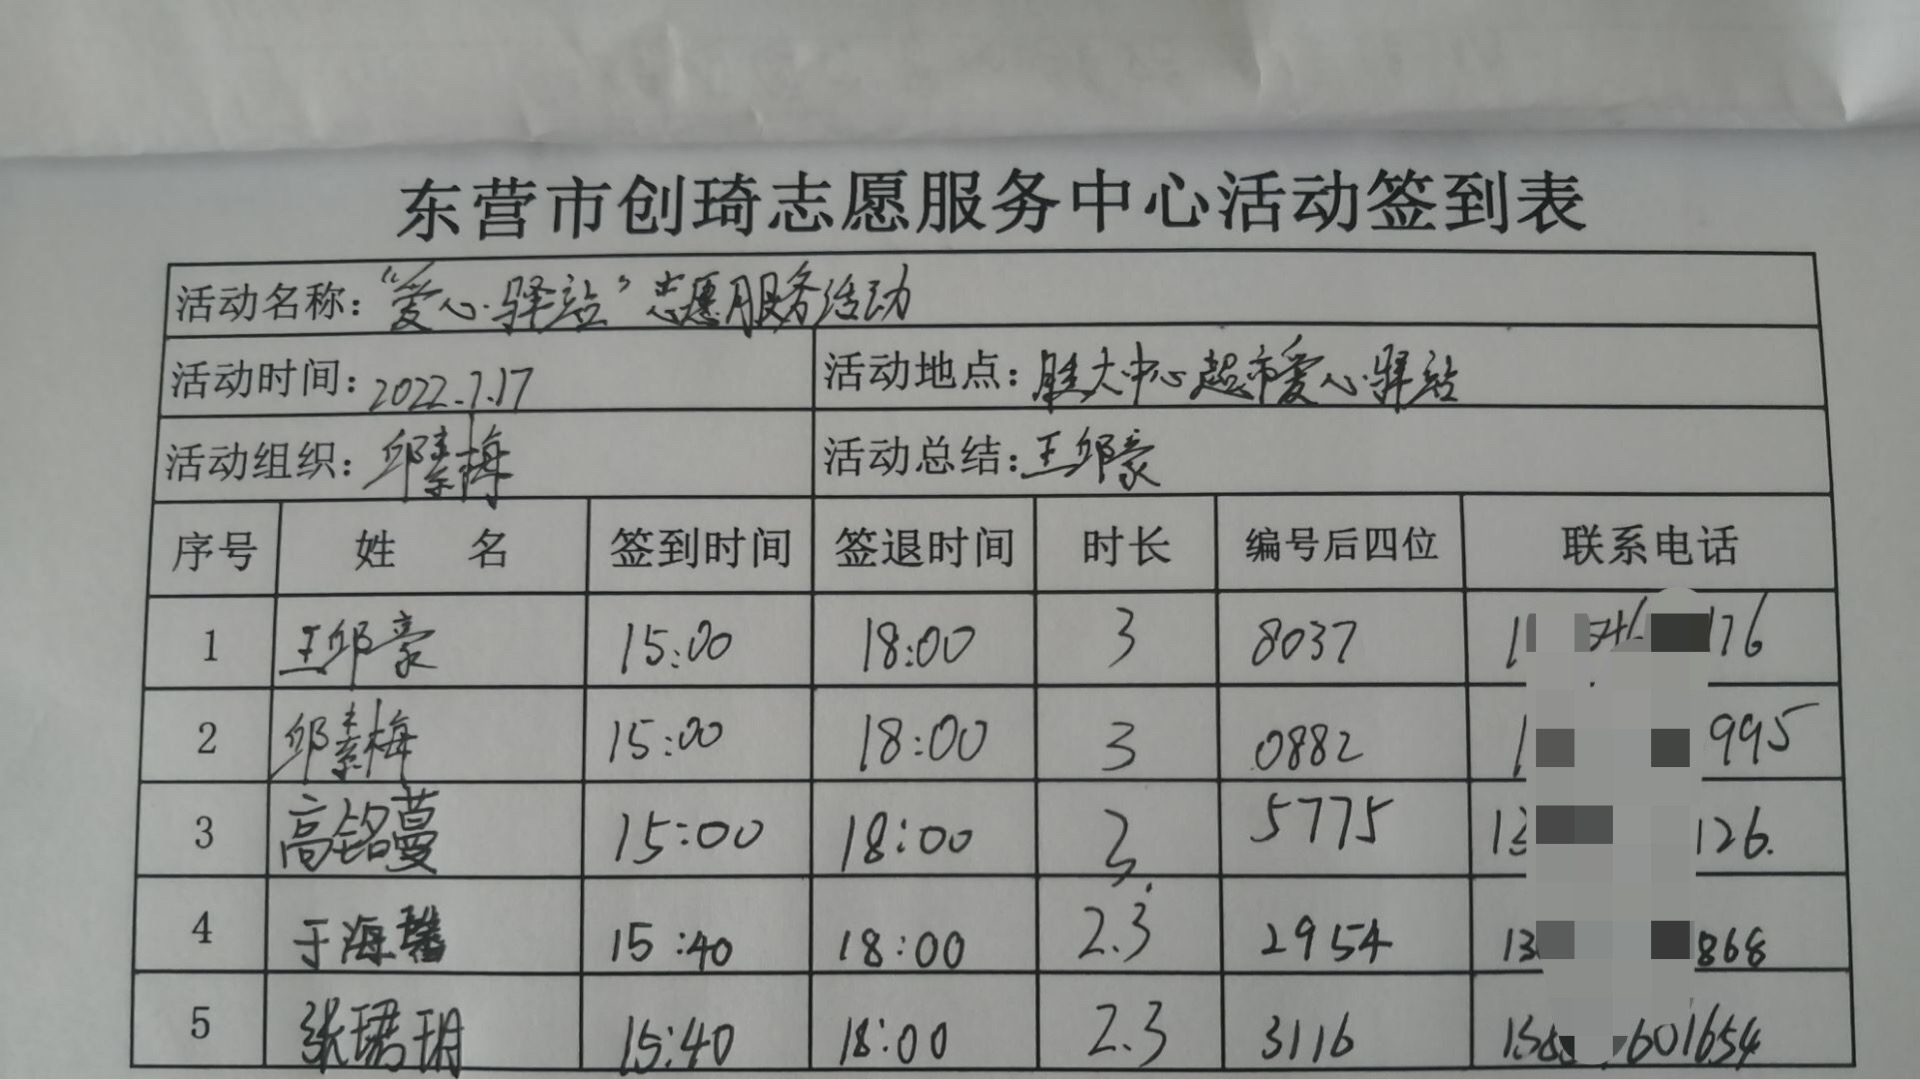 东营市创琦志愿服务中心活动签到表
活动名称：“爱心驿站”志愿服务活动
活动时间：2022.7.17 活动地点：胜大中心超市爱心驿站
活动组织：邱素梅 活动总结：王邱豪
序号 姓 名 签到时间 签退时间 时长 编号后四位 联系电话
1 王邱豪 15:00 18:00 3 8037 1 76
2 邱素梅 15:00 18:00 3 0882 1 995
3 高铭蔓 15:00 18:00 3 5775 13 126.
4 于海 15:40 18:00 2.3 2954 13 868
5 张珺玥 15:40 18:00 2.3 3116 15 601654